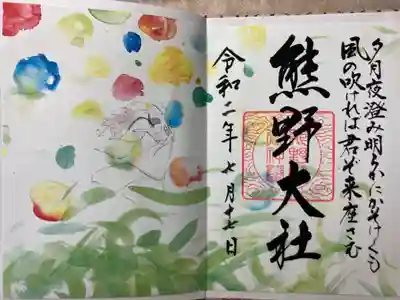 夕月夜澄み明らかにかそけくも
風の吹ければ君ぞ来座さむ
熊野大社
令和二年七月十七日